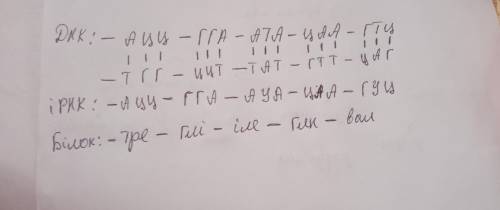 ДНК: – АЦЦ – ГГА – АТА – ЦАА – ГТЦ
– ТГГ – ЦЦТ – ТАТ – ГТТ – ЦАГ
іРНК: – АЦЦ – ГГА – АУА – ЦАА – ГУЦ
Білок: – тре – глі – іле – глн – вал